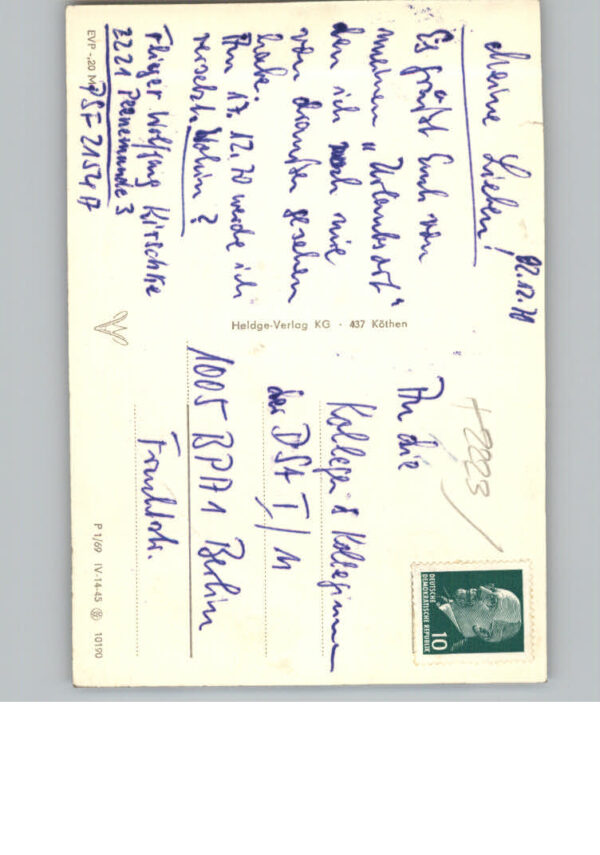 02.12.70
Meine Lieben!
Es grüßt Euch von
meinem „Urlaubsort“
den ich noch nie
von draußen gesehen
habe.
Am 17.12.70 werde ich
versetzt. Wohin?
Flieger Wolfgang Kirschke
2221 Peenemünde 3
PSF 2154 A
EVP -,20 M
Heldge-Verlag KG · 437 Köthen
+2223
An die
Kollegen & Kolleginnen
des DSA I/11
1005 BPA1 Berlin
Fruchtstr.
DEUTSCHE
DEMOKRATISCHE REPUBLIK
10
P 1/69 IV-14-45 10190